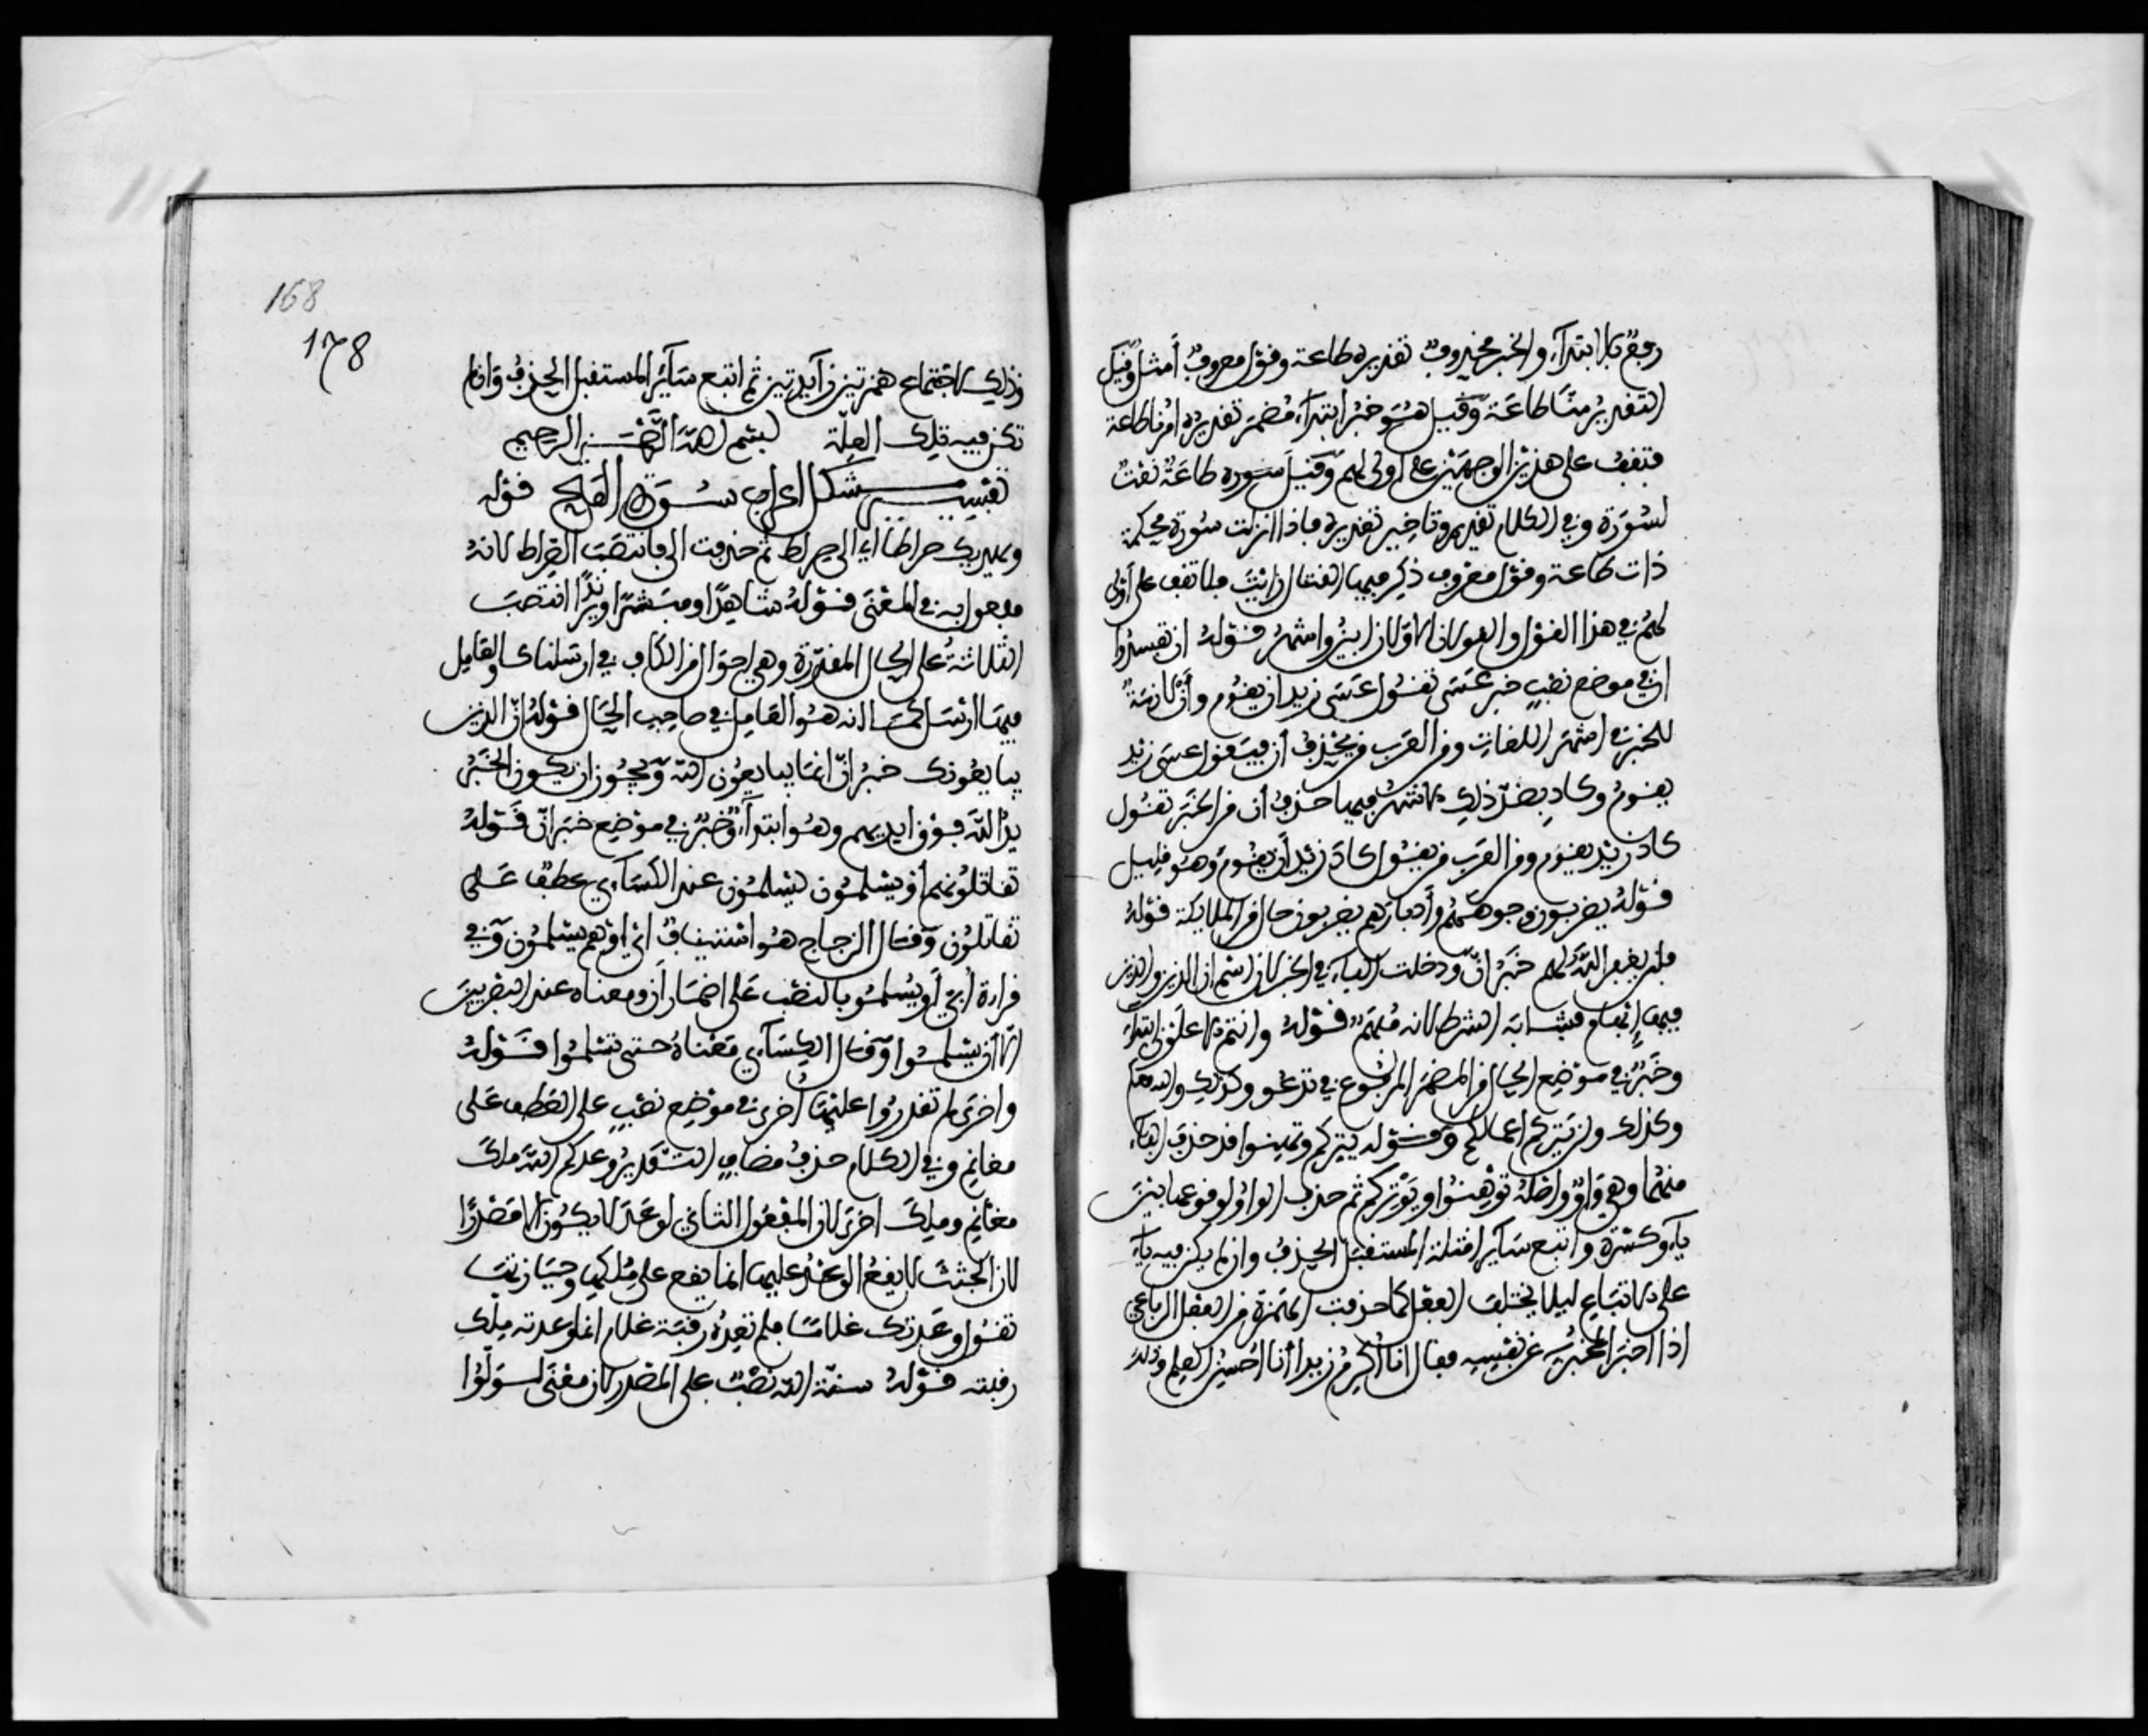 رفع بالابتداء والخبر محذوف تقديره طاعة وقول معروف أمثل وقيل
التقدير منّا طاعة وقيل هو خبر ابتداء مضمر تقديره امرنا طاعة
فتقف على هذين الوجهين على اولى لهم وقيل سورة طاعة نعت
لسورة وفي الكلام تقديم وتاخير تقديره فاذا انزلت سورة محكمة
ذات طاعة وقول معروف ذكر فيها القتال رايت فلا تقف على أولى
لهم في هذا القول والقولان الاولان ابين واشهر قوله ان تفسدوا
ان في موضع نصب خبر عسى تقول عسى زيد ان يقوم وأن لازمة
للخبر في اشهر اللغات ومن العرب من يحذف أن فيقول عسى زيد
يقوم وكاد بضد ذلك الاشهر فيها حذف أن من الخبر تقول
كاد زيد يقوم ومن العرب من يقول كاد زيد أن يقوم وهو قليل
قوله يضربون وجوههم وأدبارهم يضربون حال من الملايكة قوله
فلن يغفر الله لهم خبر انّ ودخلت الفاء في الخبر لان اسم ان الذين والذين
فيها إبهام فشابه الشرط لانه مبهم قوله وانتم الاعلون ابتداء
وخبر في موضع الحال من المضمر المرفوع في تدعو وكذلك والله معكم
وكذلك ولن يتركم اعمالكم وقوله يتركم وتهنوا قد حذف الفاء
منهما وهي واو واصله توهنوا ويوتركم ثم حذف الواو لوقوعها بين
ياء وكسرة واتبع ساير امثلة المستقبل الحذف وان لم يكن فيه ياء
على الاتباع ليلا يختلف الفعل كما حذفت الهمزة من الفعل الرباعي
اذا اخبر المخبر به عن نفسه فقال انا أكرم زيدا أنا احسن العلم وذلك
168
178
وذلك لاجتماع همزتين زآيدتين ثم اتبع سآئر المستقبل الحذف وان لم
تكن فيه تلك العلة بسم الله الرحمن الرحيم
تفسير مشكل اعراب سورة الفتح قوله
ويهديك صراطا اي الى صراط ثم حذفت الى فانتصب الصراط لانه
مفعول به في المعنى قوله شاهدا ومبشرا ونذيرا انتصب
الثلاثة على الحال المقدرة وهي احوال من الكاف في ارسلناك والعامل
فيها ارسل كما انه هو العامل في صاحب الحال قوله انّ الذين
يبايعونك خبر انّ انما يبايعون الله ويجوز ان يكون الخبر
يد الله فوق ايديهم وهو ابتداء وخبر في موضع خبر انّ قوله
تقاتلونهم أو يسلمون يسلمون عند الكسآي عطف على
تقاتلون وقال الزجاج هو استيناف اي او هم يسلمون وفي
قراءة أبي أو يسلموا بالنصب على اضمار أن ومعناه عند البصريين
الا أن يسلموا وقال الكسآي معناه حتى يسلموا قوله
واخرى لم تقدروا عليها أخرى في موضع نصب على العطف على
مغانم وفي الكلام حذف مضاف التقدير وعدكم الله ملك
مغانم وملك اخرى لان المفعول الثاني لوعد لا يكون الا مصدرا
لان الجثث لا يقع الوعد عليها انما يقع على ملكها وحيازتها
تقول وعدتك غلاما فلم تعده رقبة غلام انما وعدته ملك
رقبته قوله سنة الله نصب على المصدر لان معنى لولّوا